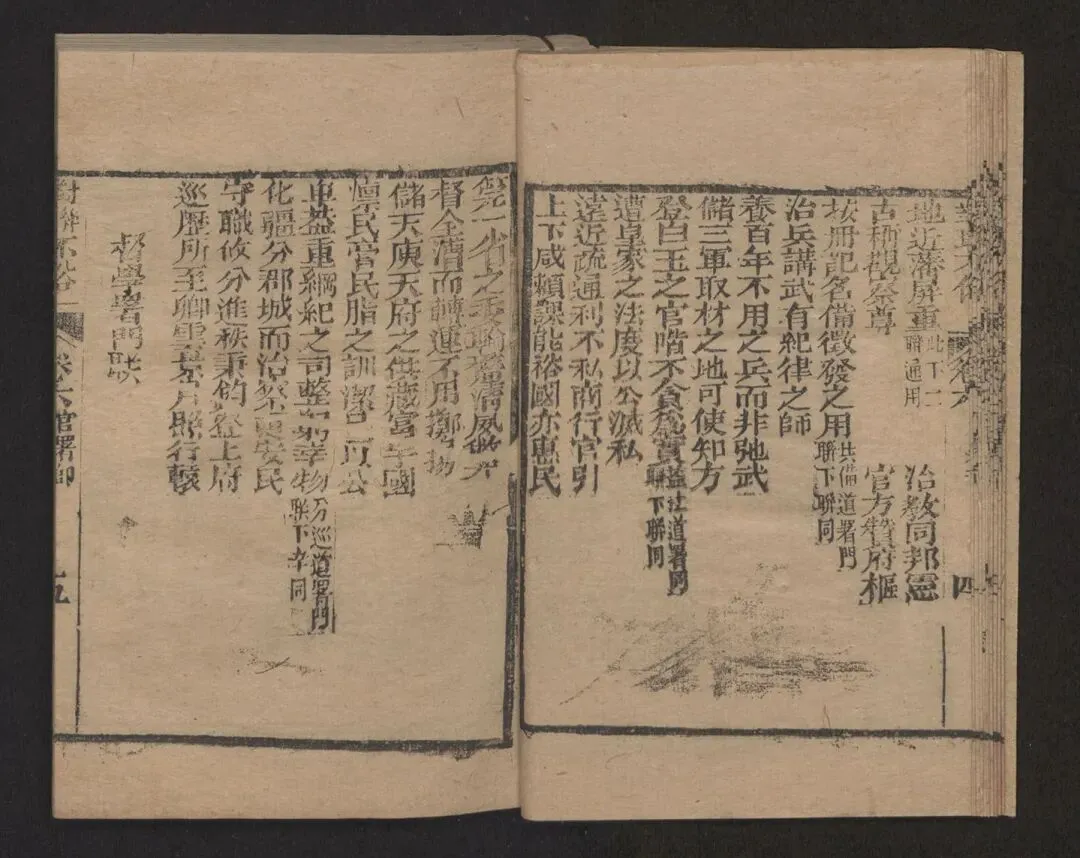 地近藩屏重此下二聯通用
治教同邦憲
古稱觀察尊
官方贊府樞
按冊記名備徵發之用兵備道署門聯下聯同
治兵講武有紀律之師
養百年不用之兵而非弛武
儲三軍取材之地可使知方
登白玉之官階不貪為寶鹽法道署門聯下聯同
遵皇家之法度以公滅私
遠近疏通利不私商行官引
上下咸賴課能裕國亦惠民
一省之
督全漕而轉運不用
儲天庾天府之供藏富于國
凜民膏民脂之訓潔己以公
車蓋重綱紀之司整躬率物分巡道署門聯下聯同
化疆分郡城而治察吏安民
守職攸分進秩秉鈞參上府
巡歷所至卿雲景月照行轅
督學署門聯
對聯不俗
卷六官署
五
四